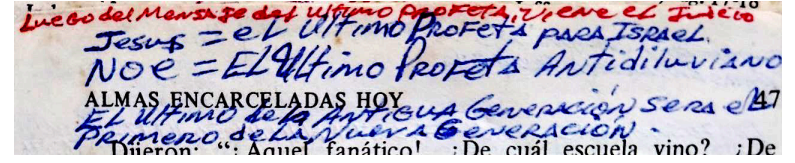 Luego del Mensaje del Ultimo Profeta, Viene el Juicio
Jesus = el Ultimo Profeta para Israel.
Noe = El Ultimo Profeta Antidiluviano
ALMAS ENCARCELADAS HOY 47
El Ultimo de la Antigua Generación sera el
Primero de la Nueva Generación.
Dijeron: “¡Aquel fanático! ¿De cuál escuela vino? ¿De